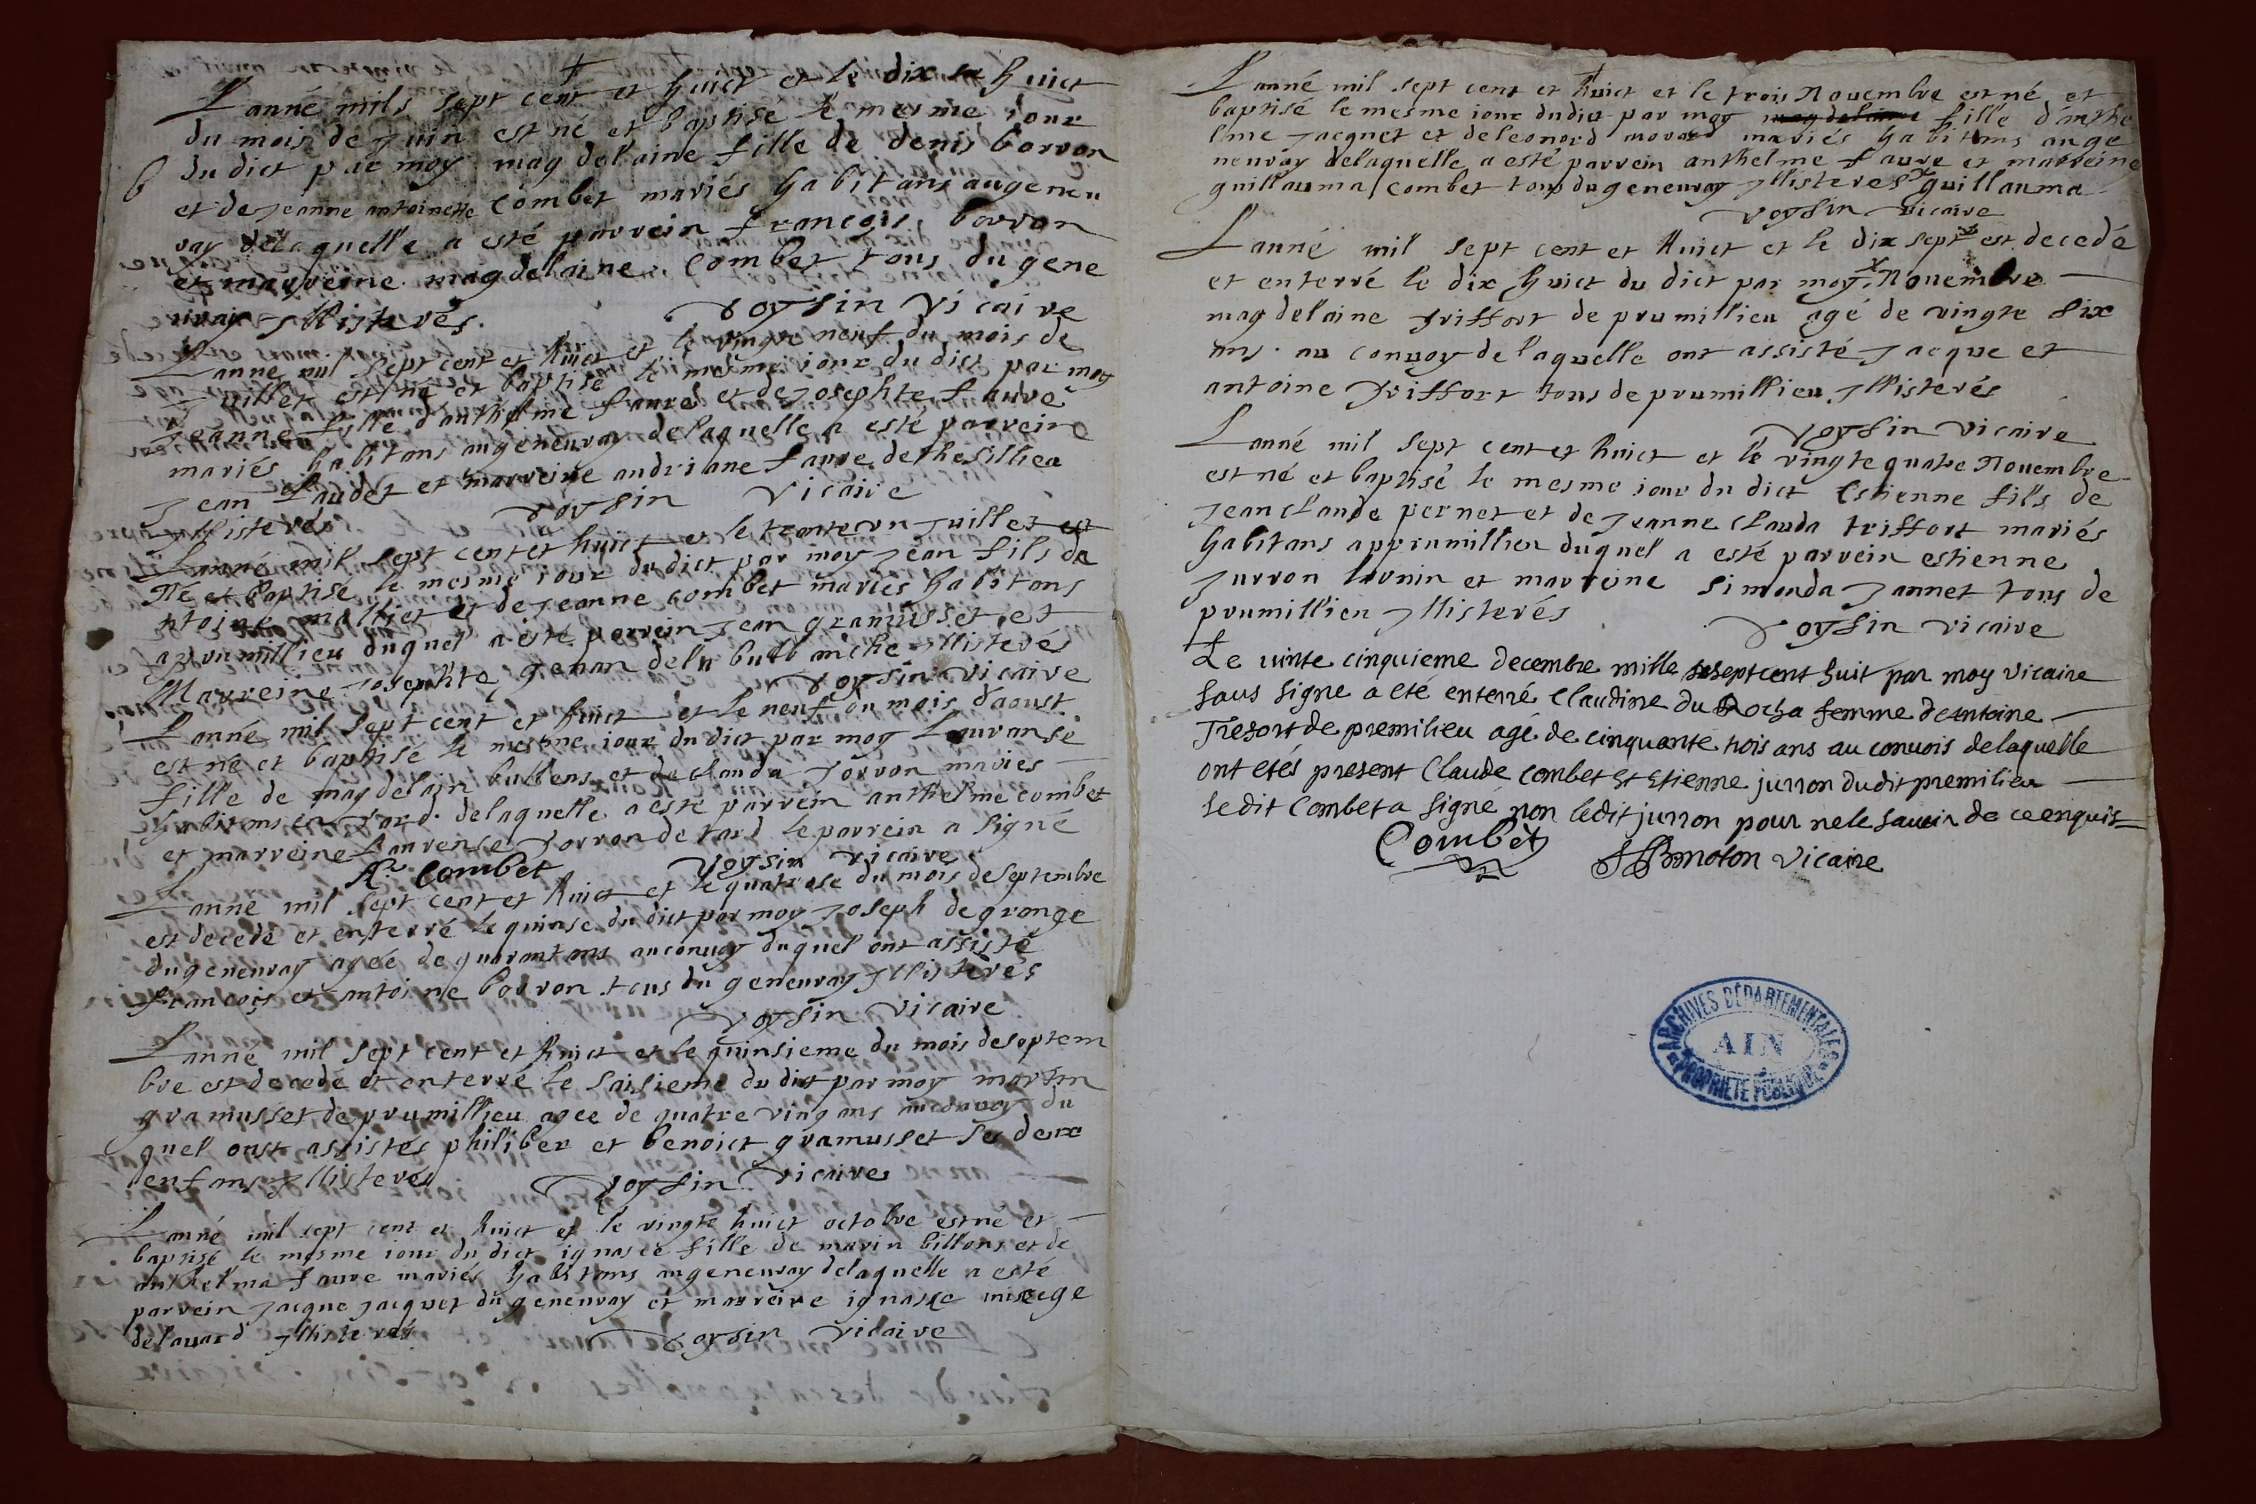 L'anné mils sept cent et huict et le dix et huict
du mois de Juin est né et baptisé le mesme iour
du dict par moy magdelaine fille de denis borron
et de Jeanne antoinette Combet mariés habitans augeneu
vray delaquelle a esté parrein francois borron
et marreine magdelaine Combet tous du gene
vray Illisterés.
voysin vicaire
L'anne mil sept cent et huict et le vingte neuf du mois de
Juillet est né et baptisé le mesme iour du dict par moy
Jeanne fylle d'anthelme faure et de Josephte faure
mariés habitans augeneuvray delaquelle a esté parrein
Jean faudet et marreine andriane faure de thesillieu
Illisterés
voysin vicaire
L'anné mil sept cent et huict et le trante un Juillet est
Né et baptisé le mesme iour du dict par moy Jean fils de
ntoine mollliet et de Jeanne combet mariés habitans
aprumillieu duquel a esté parrein Jean gramusset et
Marreine Josephte genan dela Illisterés
voysin vicaire
L'anné mil sept cent et huict et le neuf du mois daoust
est né et baptisé le mesme iour du dict par moy Lauranse
fille de magdelain bullens et de clauda Jorron mariés
habitans en tard delaquelle a esté parrein anthelme combet
et marreine Laurense Jorron de tard le parrein a signé
A. Combet
voysin vicaire
L'anne mil sept cent et huict et le quatrose du mois de septembre
est decede et enterré le quinse du dict par moy Joseph degrange
dugeneuvray agée de quarantans auconvoy duquel ont assisté
francois et antoine borron tous du geneuvray Illisterés
voysin vicaire
L'anne mil sept cent et huict et le quinsieme du mois deseptem
bre est decede et enterré le saisieme du dict par moy martin
gramusset de prumillieu agee de quatre ving ans auconvoy du
quel onst assistés philiber et benoict gramusset ses deux
enfans Illisterés
voysin vicaire
L'anné mil sept cent et huict et le vingte huict octobre est né et
baptisé le mesme iour du dict ignasce fille de marin billons et de
anthelma faure mariés habitans augeneuvray delaquelle a esté
parrein Jacque Jacquet du geneuvray et marreine ignasce
delavard Illisterés
voysin vicaire
L'anné mil sept cent et huict et le trois Novembre est né et
baptisé le mesme iour dudict par moy magdelaine fille d'anthe
lme Jacquet et de leonord morand mariés habitans auge
neuvray delaquelle a esté parrein anthelme faure et marreine
guillauma Combet tous dugeneuvray Illisterés x guillauma
voysin vicaire
L'anné mil sept cent et huict et le dix sept x est decedé
et enterré le dix huict du dict par moy x Novembre
magdelaine triffort de prumillieu agé de vingte six
ans au convoy delaquelle ont assisté Jacque et
antoine triffort tous de prumillieu Illisterés
voysin vicaire
L'anné mil sept cent et huict et le vingte quatre Novembre
est né et baptisé le mesme iour du dict Estienne fils de
Jean claude pernet et de Jeanne clauda triffort mariés
habitans apprumillieu duquel a esté parrein estienne
Jurron et marreine simonda Jannet tous de
prumillieu Illisterés
voysin vicaire
Le vinte cinquieme decembre mille septcent huit par moy vicaire
sous signe a eté enterré Claudine du Rocha femme deantoine
Tresort de premilieu agé de cinquante trois ans au convois delaquelle
ont etés present Claude combet et Etienne jurron dudit premilieu
ledit Combet a signé non ledit jurron pour nele savoir de ce enquis
Combet
Vicaire
ARCHIVES DÉPARTEMENTALES
AIN
PROPRIÉTÉ PUBLIQUE